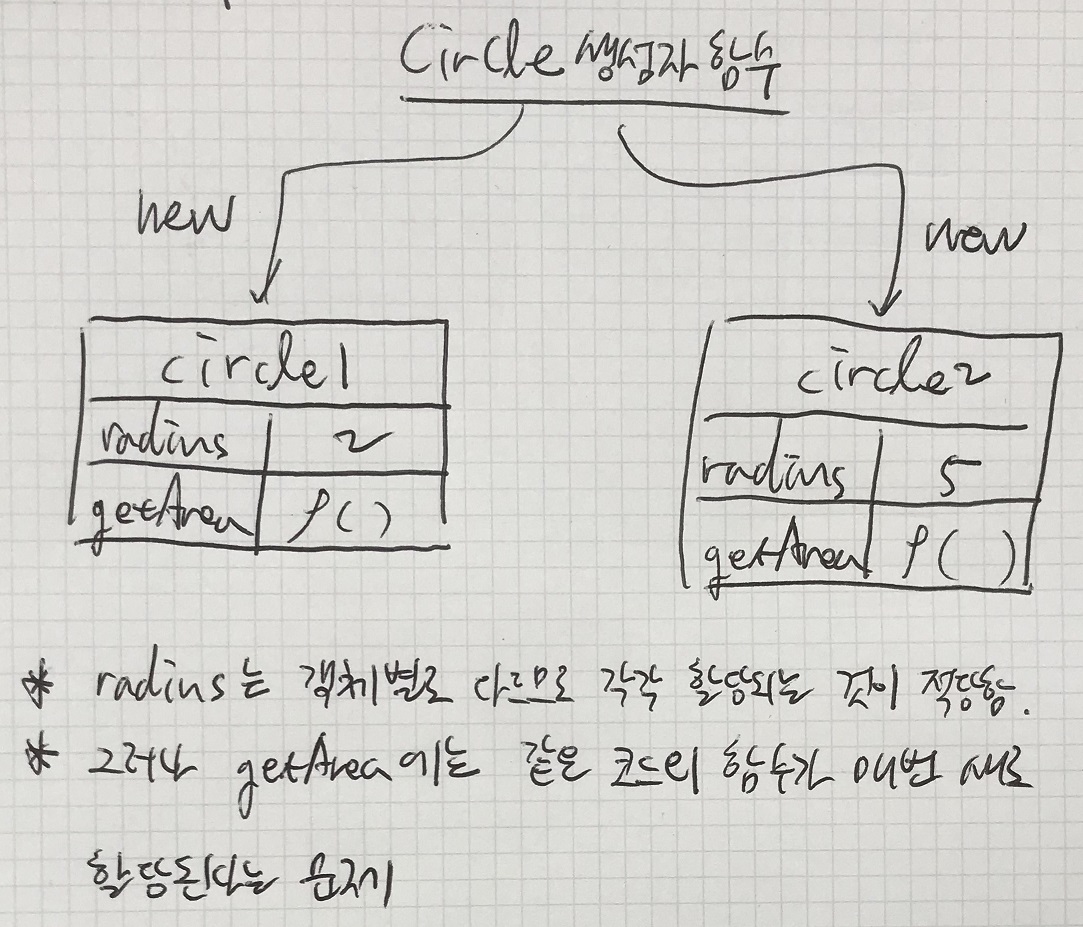 Circle 생성자 함수
new
new
circle1
radius 2
getArea f()
circle2
radius 5
getArea f()
* radius는 객체별로 다르므로 각각 할당되는 것이 적당함.
* 그러나 getArea에는 같은 코드의 함수가 매번 새로
할당된다는 문제